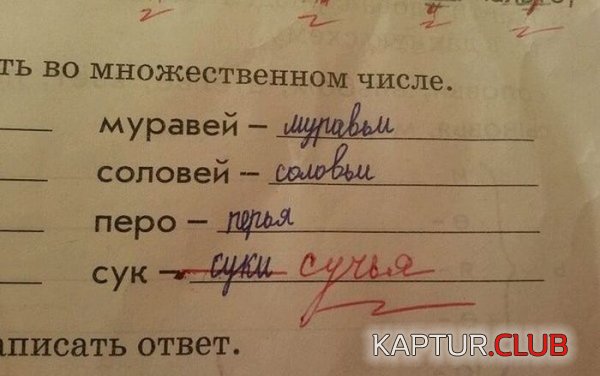 ть во множественном числе.
муравей – муравьи
соловей – соловьи
перо – перья
сук – суки сучья
аписать ответ.
KAPTUR.CLUB